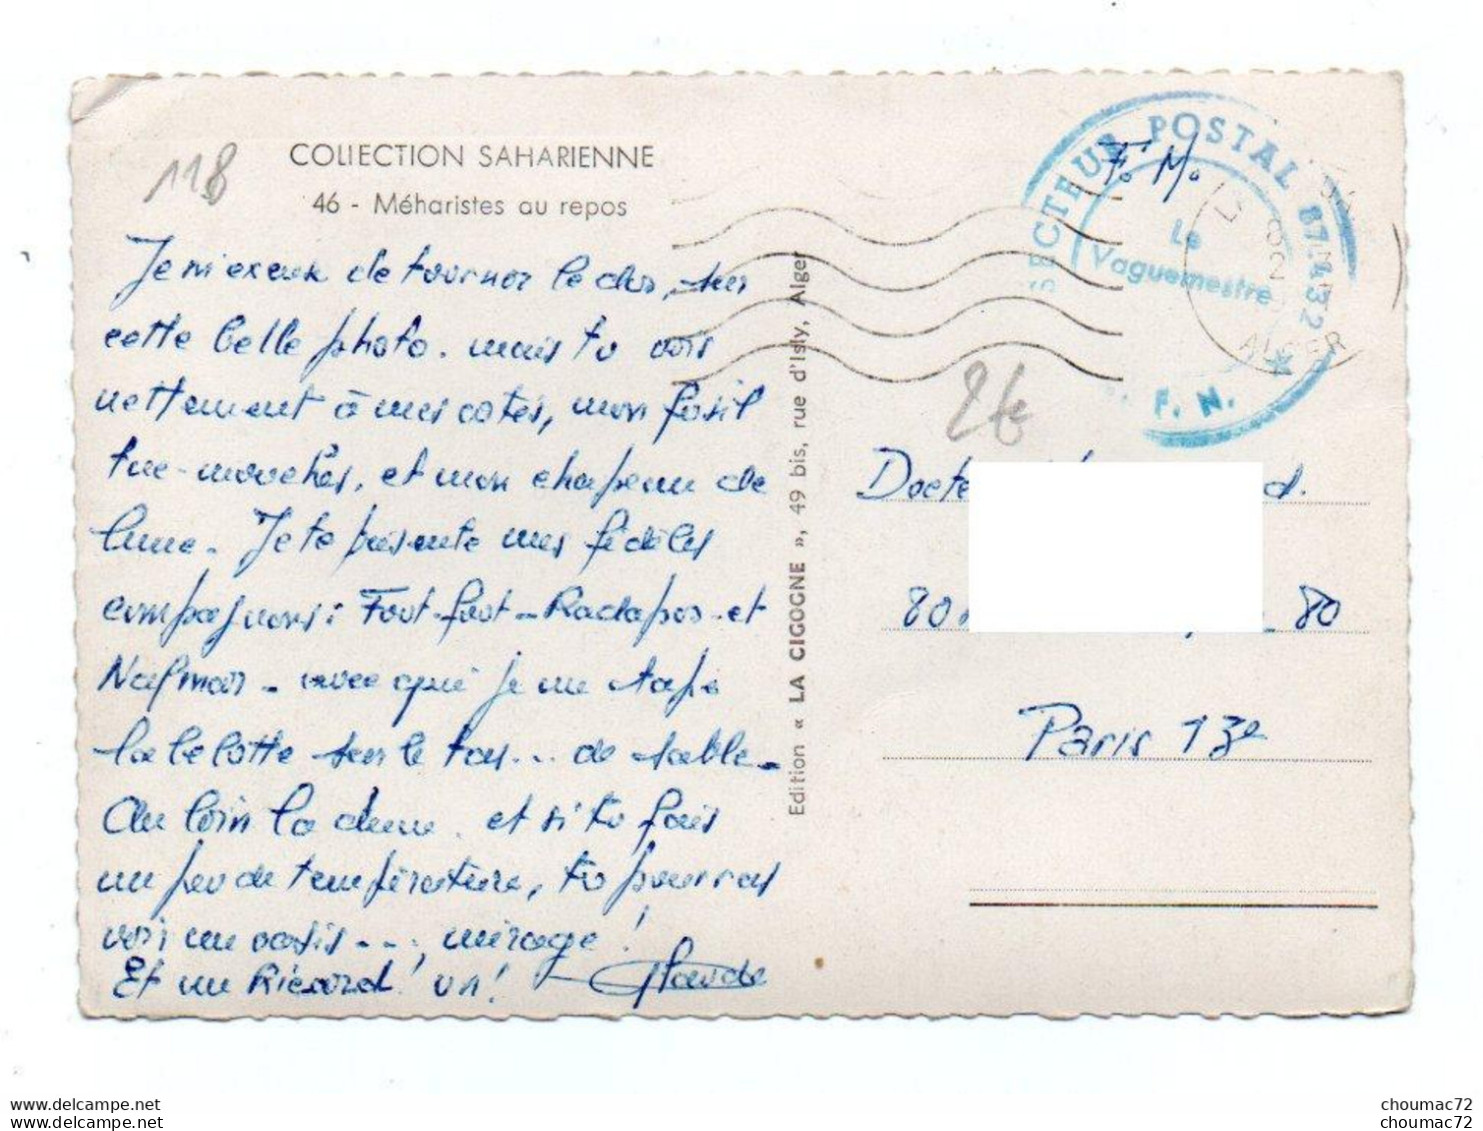 118
COLLECTION SAHARIENNE
46 - Méharistes au repos
Je m'excuse de tourner le dos, sur
cette belle photo. mais tu vois
nettement à mes cotés, mon fusil
tue-mouches, et mon chapeau de
lune. Je te présente mes fidèles
compagnons: Fout-fout - Radapos - et
- avec qui je me tape
la belotte sur le tas... de sable -
Au loin la dune. et si tu fais
un peu de température, tu pourras
voir un oasis ..., mirage!
Et un Ricard! un! Claude
Edition « LA CIGOGNE », 49 bis, rue d'Isly, Alger
SECTEUR POSTAL 87.432
Le
Vaguemestre
F. N.
F. M.
ALGER
2€
80
80
Paris 13e
www.delcampe.net
choumac72
www.delcampe.net
choumac72